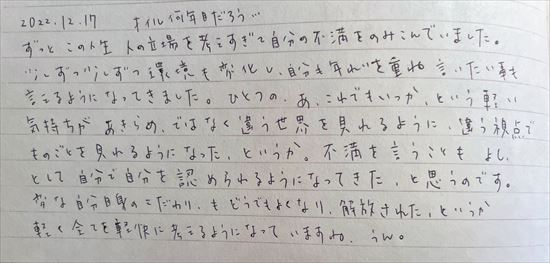 2022.12.17 オイル何年目だろう…
ずっとこの人生 人の立場を考えすぎて自分の不満をのみこんでいました。
少しずつ少しずつ環境も変化し、自分も年れいを重ね 言いたい事も
言えるようになってきました。ひとつの、あ、これでもいっか、という軽い
気持ちが あきらめ、ではなく違う世界を見れるように、違う視点で
ものごとを見れるようになった、というか。不満を言うこともよし、
として自分で自分を認められるようになってきた、と思うのです。
変な自分自身のこだわり、もどうでもよくなり、解放された、というか
軽く全てを軽快に考えるようになっていますね、うん。